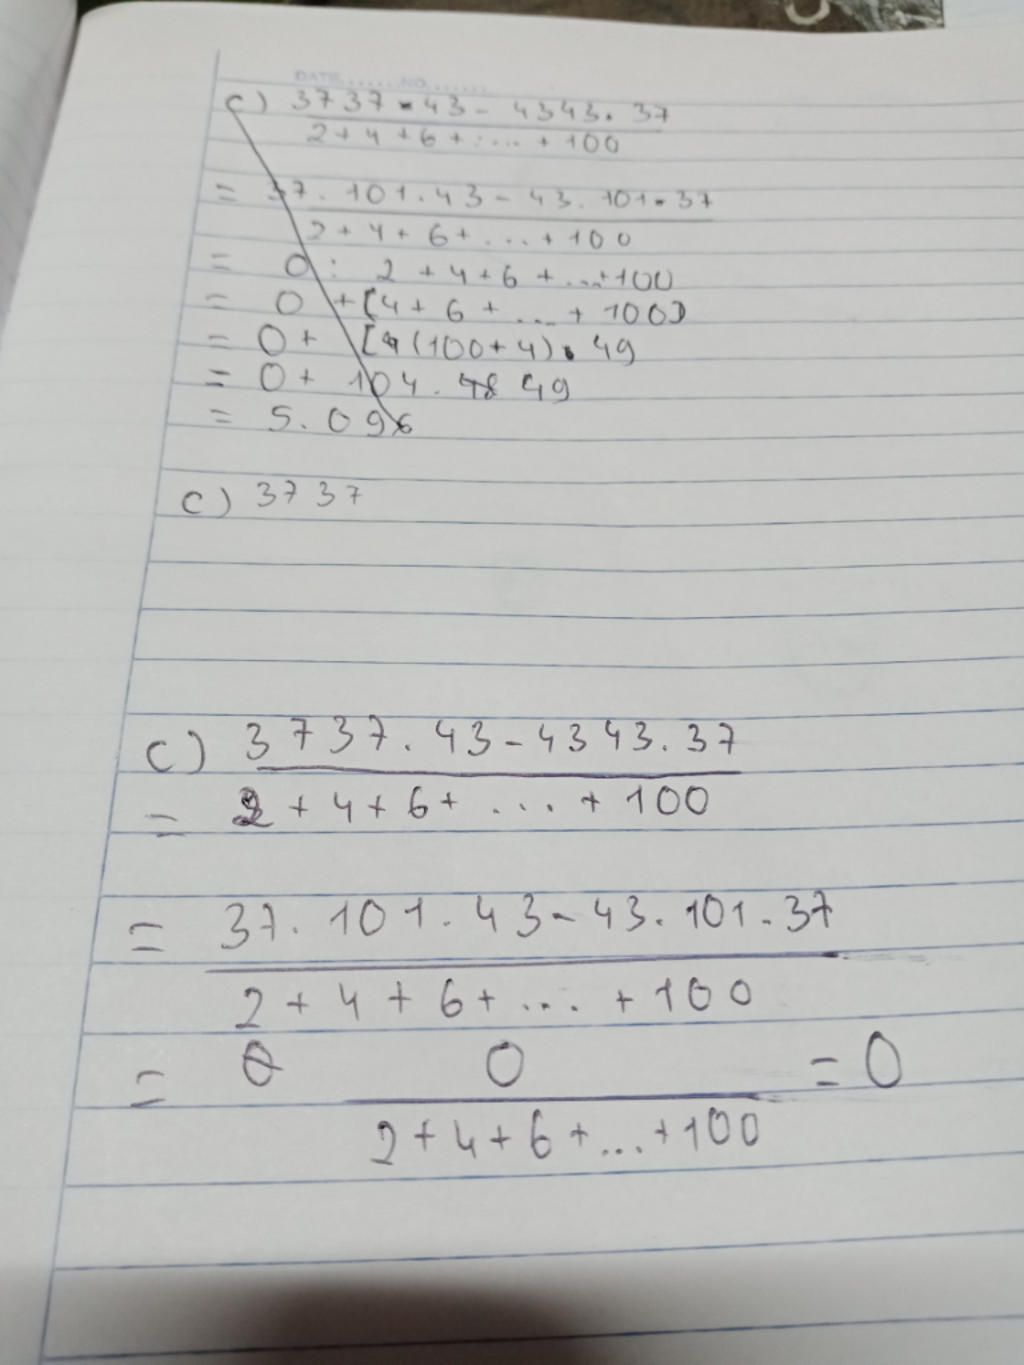 DATE...... NO.......
c) 3737 . 43 - 4343 . 37
2 + 4 + 6 + .... + 100
= 37 . 101 . 43 - 43 . 101 . 37
2 + 4 + 6 + .... + 100
= 0 : 2 + 4 + 6 + ... + 100
= 0 + [4 + 6 + ... + 100]
= 0 + [(100 + 4) . 49
= 0 + 104 . 49
= 5.096
c) 3737
c) 3737 . 43 - 4343 . 37
= 2 + 4 + 6 + .... + 100
= 37 . 101 . 43 - 43 . 101 . 37
2 + 4 + 6 + .... + 100
= 0 0 = 0
2 + 4 + 6 + ... + 100